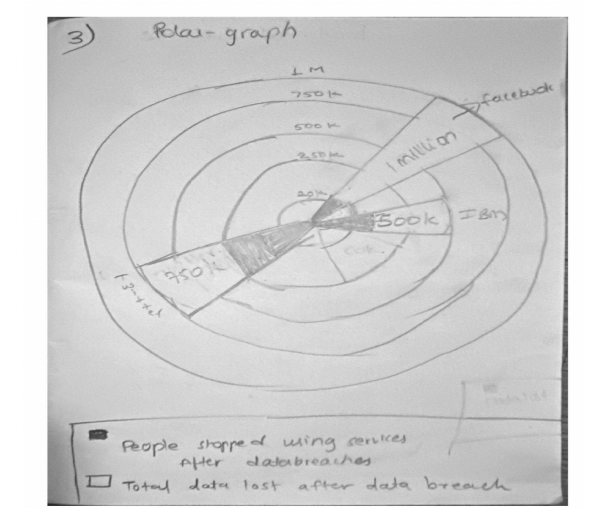 3) Polar-graph
1M
750K
500K
250K
20K
facebook
1 million
500K IBM
750K
People stopped using services
After databreaches
Total data lost after data breach